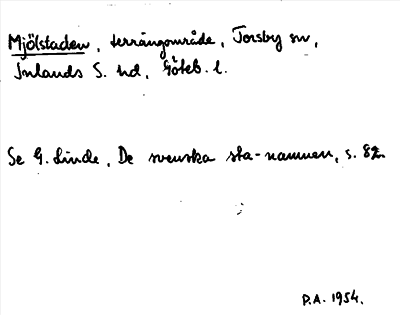 Mjölstaden, terrängområde, Torsby sn,
Inlands S. hd, Göteb. l.
Se G. Linde, De svenska sta-namnen, s. 82.
P.A. 1954.